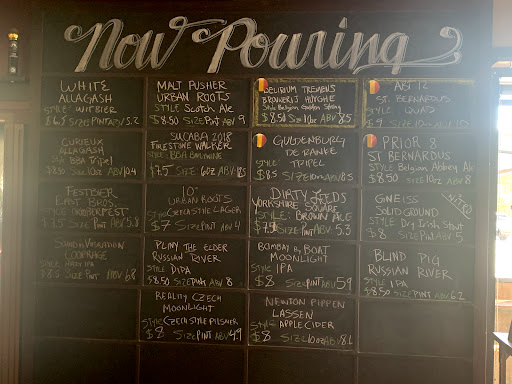 Now Pouring
WHITE
ALLAGASH
STYLE WITBIER
SIZE PINT ABV 5.2
MALT PUSHER
URBAN ROOTS
STYLE Scotch Ale
$8.50 SIZE PINT ABV 9
DELIRIUM TREMENS
BROUWERIJ HUYGHE
STYLE Belgian Golden Strong
$8.50 SIZE 10oz ABV 8.5
ABT 12
ST. BERNARDUS
STYLE QUAD
$9 SIZE 10oz ABV
CURIEUX
ALLAGASH
STYLE BBA TRIPEL
$8.50 SIZE 10oz ABV 10.4
SUCABA 2018
FIRESTONE WALKER
STYLE BBA BARLEYWINE
$7.5 SIZE 6oz ABV
GULDENBURG
DE RANKE
STYLE TRIPEL
$8.5 SIZE 10oz ABV 8.5
PRIOR 8
ST BERNARDUS
STYLE Belgian Abbey Ale
$8.50 SIZE 10oz ABV 8
FESTBIER
EAST BROS.
STYLE OKTOBERFEST
SIZE PINT ABV 5.8
10°
URBAN ROOTS
STYLE CZECH STYLE LAGER
$7 SIZE PINT ABV 4
DIRTY
YORKSHIRE SQUARE
STYLE: BROWN ALE
$7.50 SIZE: PINT ABV 5.3
GNEISS
SOLID GROUND
STYLE Dry Irish Stout
$8 SIZE PINT ABV 5
NITRO
STYLE HAZY IPA
$8.5 SIZE PINT ABV 6.8
PLINY THE ELDER
RUSSIAN RIVER
STYLE DIPA
$8.50 SIZE PINT ABV 8
BOMBAY BY BOAT
MOONLIGHT
STYLE IPA
$8 SIZE PINT ABV 5.9
BLIND PIG
RUSSIAN RIVER
STYLE IPA
$8.50 SIZE PINT ABV 6.2
REALITY CZECH
MOONLIGHT
STYLE CZECH STYLE PILSNER
$8 SIZE PINT ABV 4.9
NEWTON PIPPEN
LASSEN
STYLE APPLE CIDER
$8 SIZE 10oz ABV 8.1